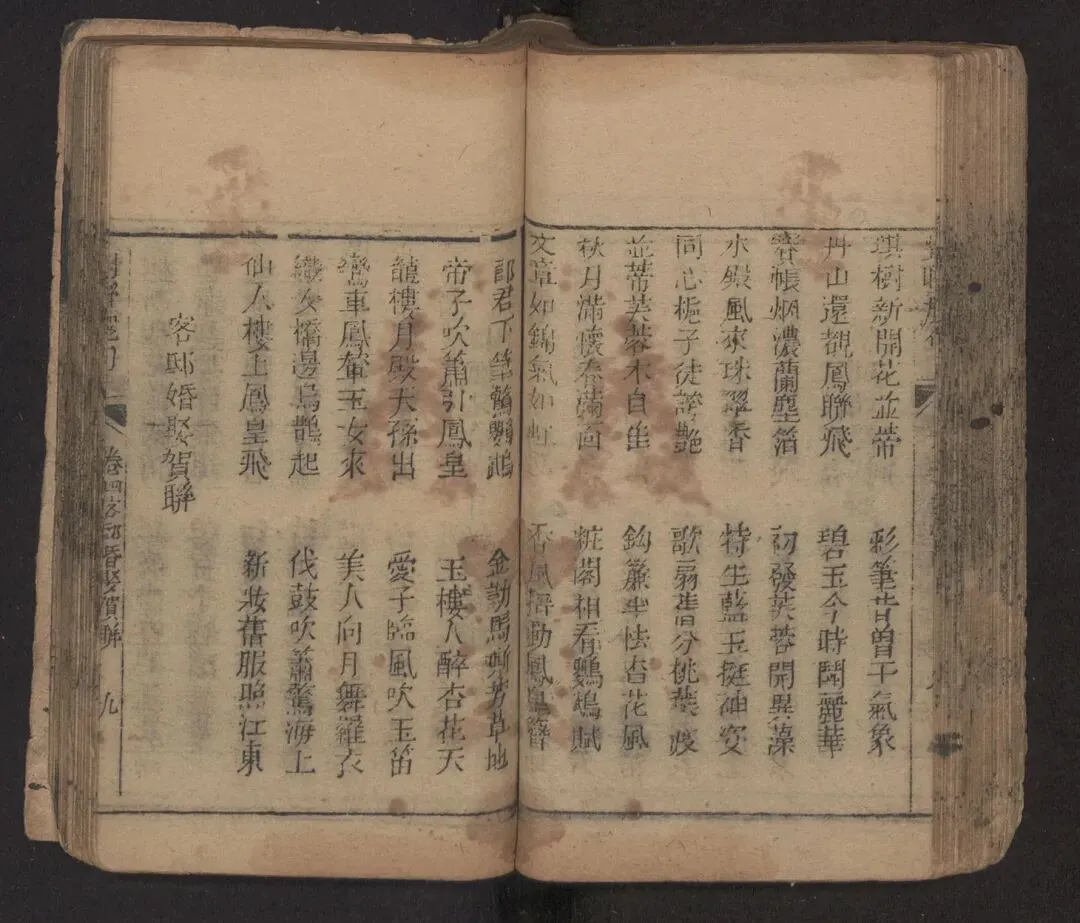 琪樹新開花並蒂　彩筆昔曾干氣象
丹山還覩鳳聯飛　碧玉今時鬪麗華
帳烟濃蘭　初發芙蓉開異藻
水　風來珠翠香　特生藍玉挺神姿
同心梔子徒誇艷　歌扇昔分桃葉渡
並蒂芙蓉本自隹　鈎簾半怯杏花風
秋月滿懷春滿面　粧閣相看鸚鵡賦
文章如錦氣如虹　香風搢動鳳皇簪
郎君下筆驚鸚鵡　金勒馬嘶芳草地
帝子吹簫引鳳皇　玉樓人醉杏花天
龍樓月殿天孫出　愛子臨風吹玉笛
鸞車鳳輦玉女來　美人向月舞羅衣
織女橋邊烏鵲起　伐鼓吹簫驚海上
仙人樓上鳳皇飛　新妝舊服照江東
客邸婚娶賀聯
卷四客邸婚娶賀聯　九